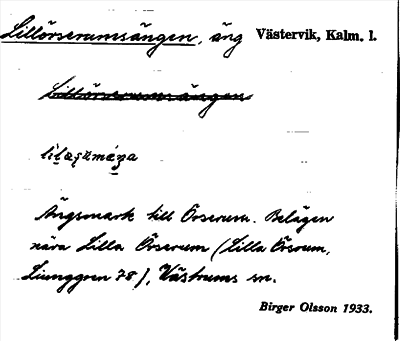 Lillörserumsängen, äng Västervik, Kalm. l.
Lillörserumsängen
Ängsmark till Örserum. Belägen
nära Lilla Örserum (Lilla Örsrum,
Ljunggren 78), Västrums sn.
Birger Olsson 1933.